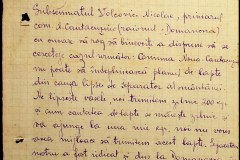 Subsemnatul Volcovici Nicolae, primarul
com. I. Cantacuzin (raionul Domanevca)
ca onoare vă rog să binevoiți a dispune să se
cerceteze cazul următor: Comuna Ana Cantacuzin
nu poate să îndeplinească planul de lapte
din cauza lipsei de separator al smântânei
Ne lipsește vasele noi trimitem zilnic 200 kg.
și cum cantitatea de lapte se mărește zilnic și
va ajunge la una mie kgr. noi nu vom
avea mijloac să trimitem acest lapte. Separatorul
nostru a fost ridicat și dus la